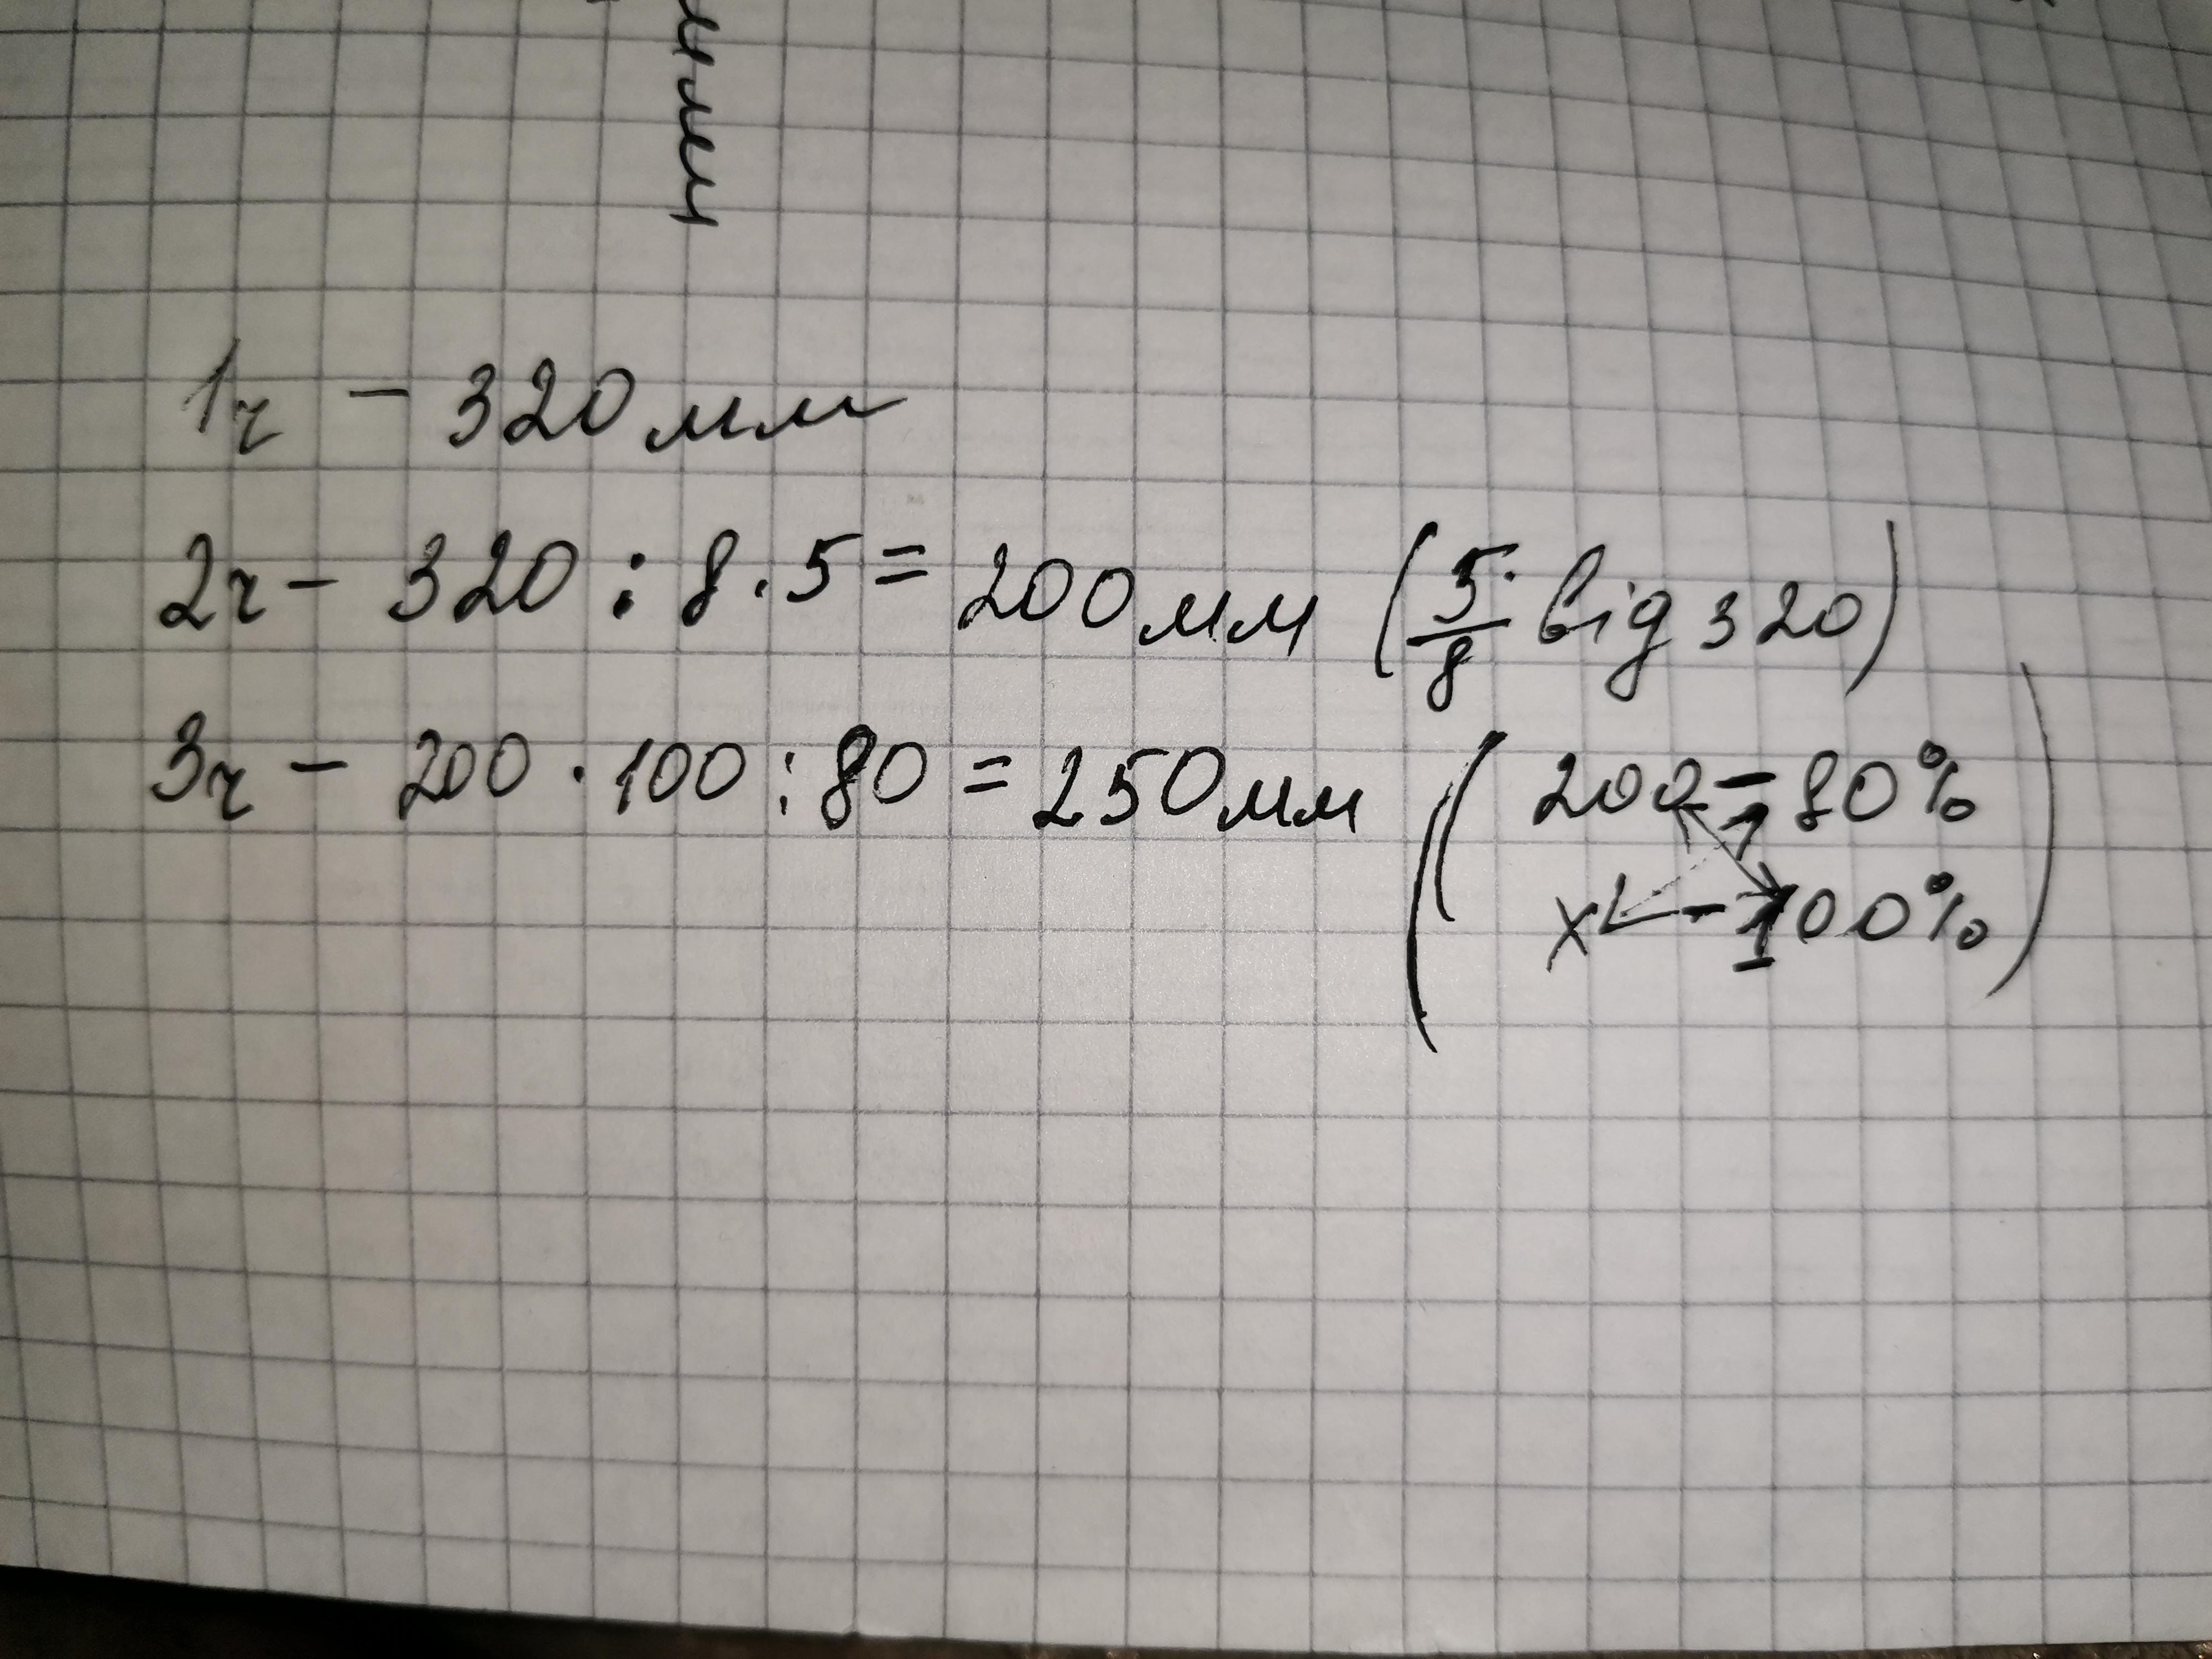 1г - 320 мм
2г - 320 : 8 · 5 = 200 мм (5/8 від 320)
3г - 200 · 100 : 80 = 250 мм (200 - 80%
х - 100%)